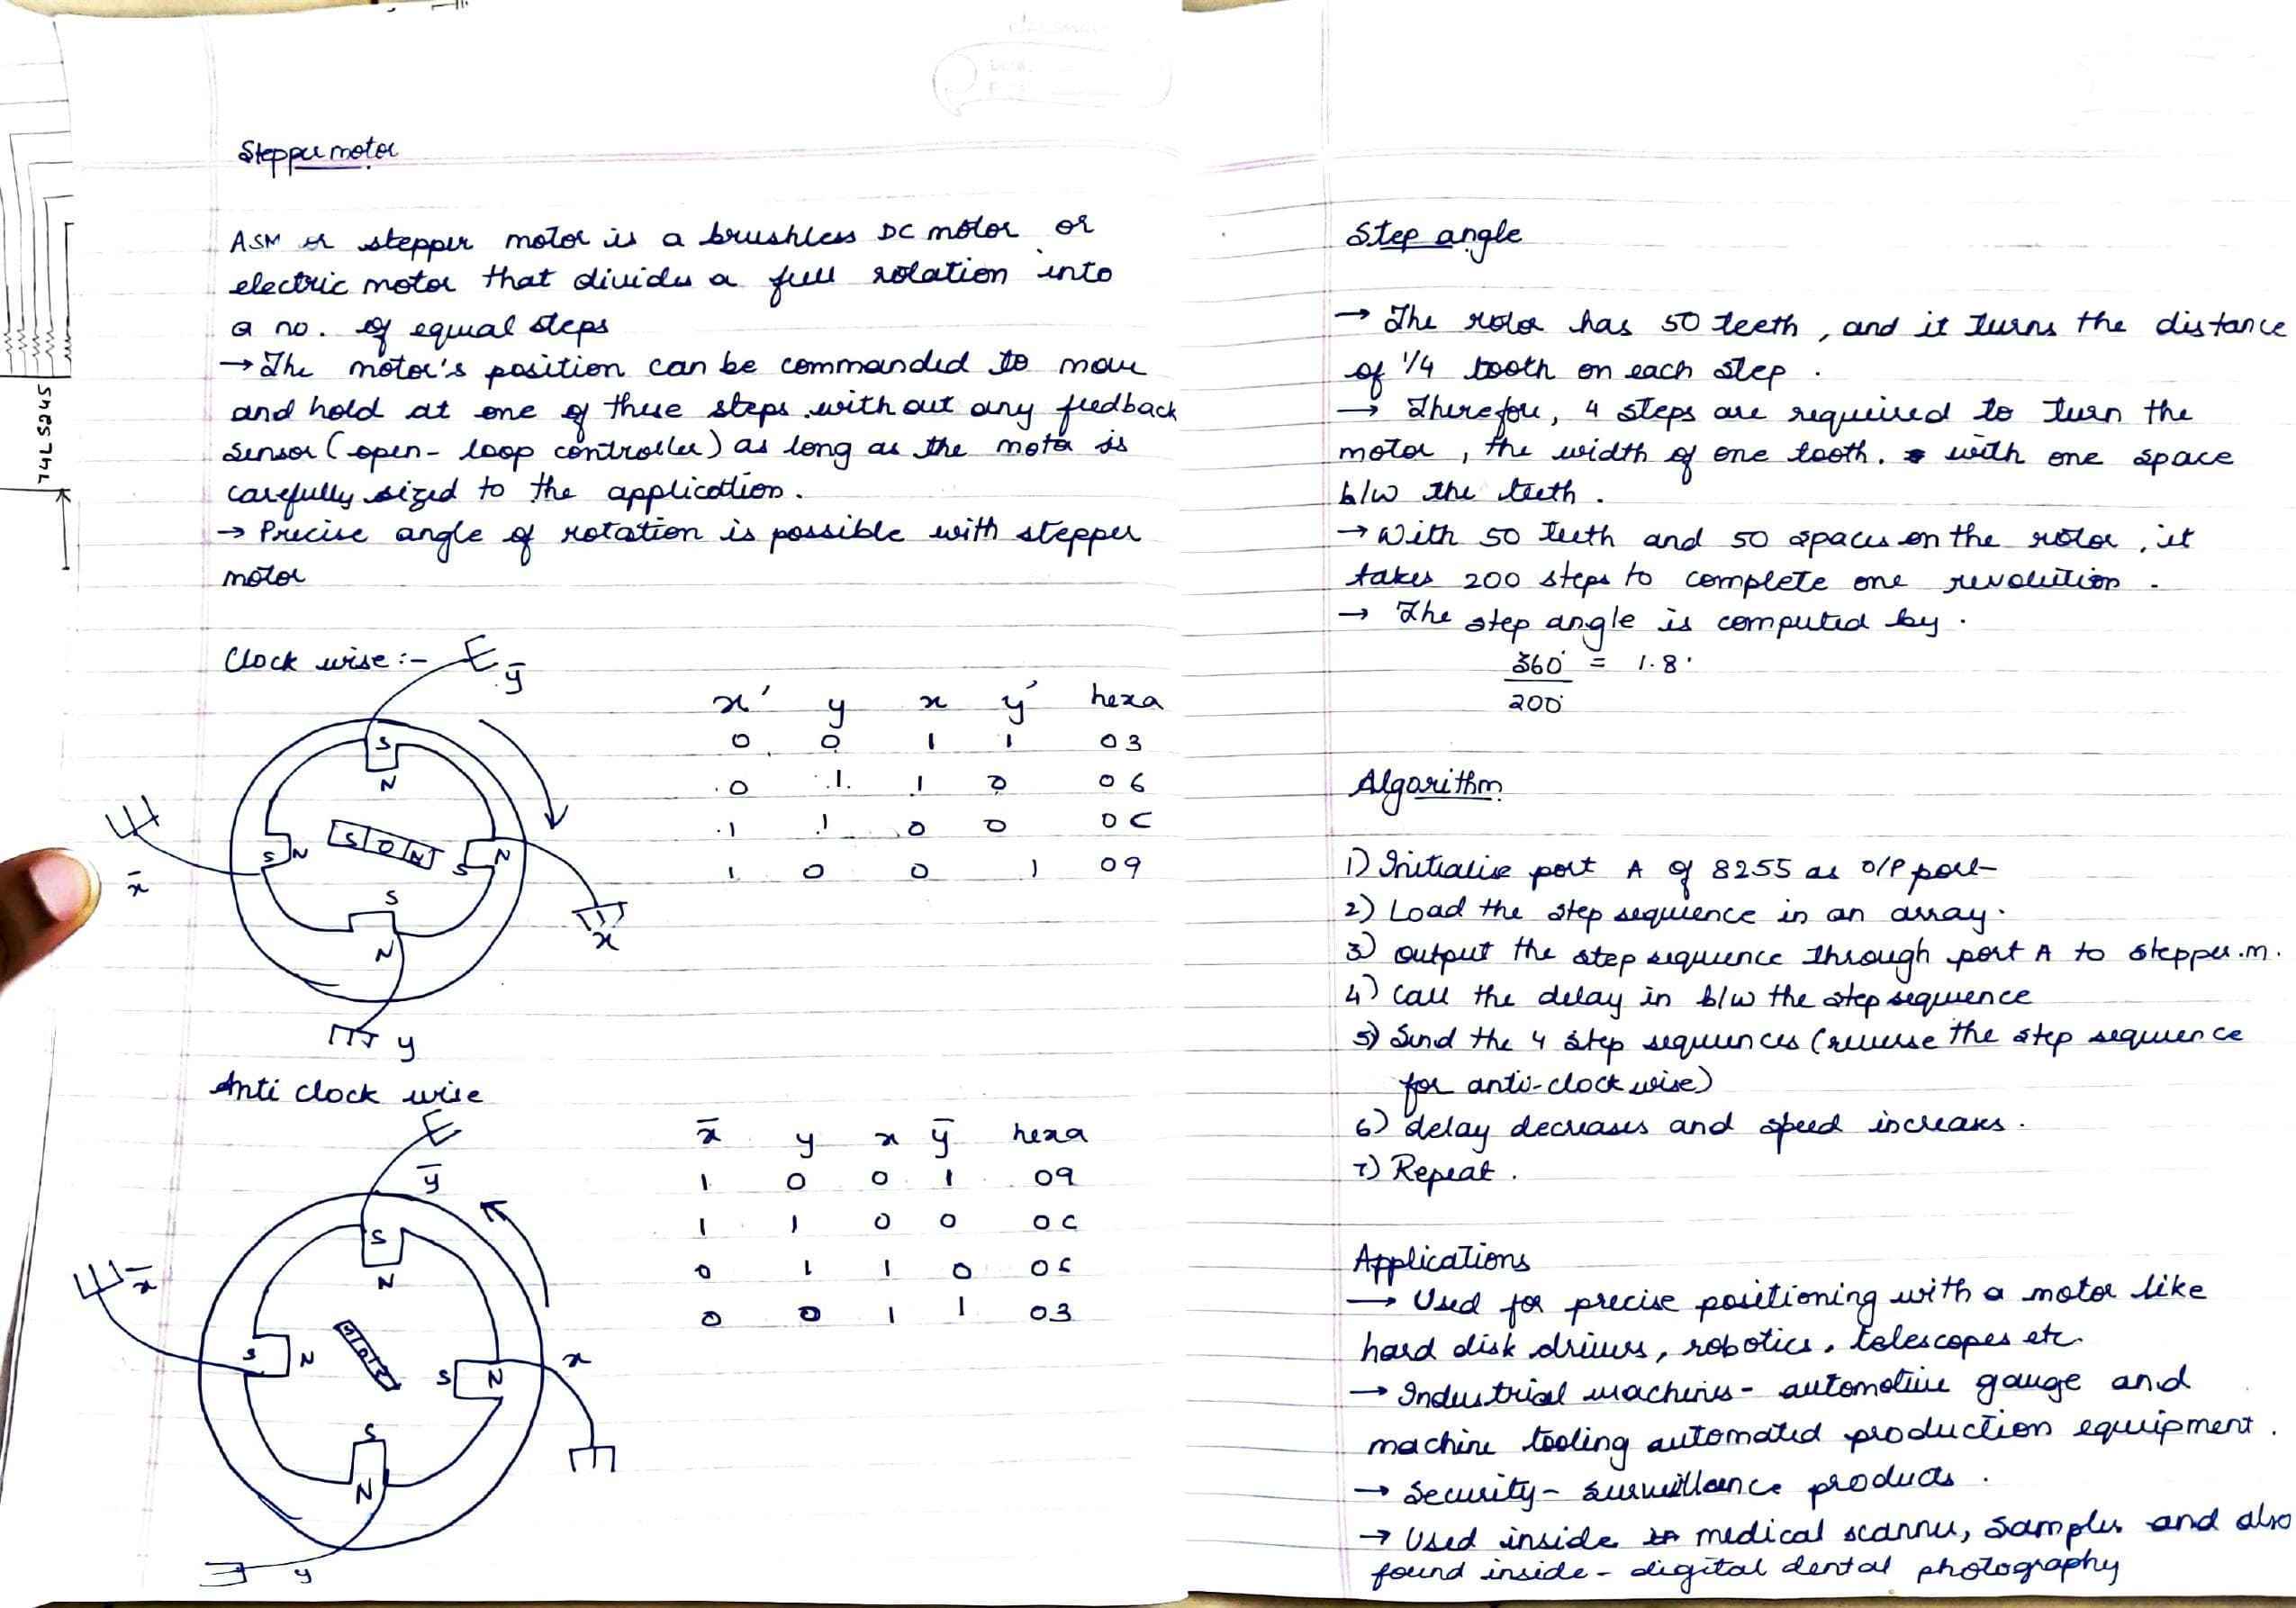 Stepper motor
ASM or stepper motor is a brushless DC motor or
electric motor that divides a full rotation into
a no. of equal steps
→ The motor's position can be commanded to move
and hold at one of these steps without any feedback
sensor (open-loop controller) as long as the motor is
carefully sized to the application.
→ Precise angle of rotation is possible with stepper
motor
Clock wise :-
ȳ
S
N
S N
S O N
S N
x̄
S
N
x
y
x' y x y' hexa
0 0 1 1 03
0 1 1 0 06
1 1 0 0 0C
1 0 0 1 09
Anti clock wise
ȳ
x̄
S
N
S N
S N
x
S
N
y
x̄ y x ȳ hexa
1 0 0 1 09
1 1 0 0 0C
0 1 1 0 06
0 0 1 1 03
74LS245
Step angle
→ The rotor has 50 teeth, and it turns the distance
of 1/4 tooth on each step.
→ Therefore, 4 steps are required to turn the
motor, the width of one tooth. with one space
b/w the teeth.
→ With 50 teeth and 50 spaces on the rotor, it
takes 200 steps to complete one revolution.
→ The step angle is computed by.
360° = 1.8°
200
Algorithm
1) Initialise port A of 8255 as O/P port
2) Load the step sequence in an array.
3) output the step sequence through port A to stepper.m.
4) Call the delay in b/w the step sequence
5) Send the 4 step sequences (reverse the step sequence
for anti-clock wise)
6) delay decreases and speed increases.
7) Repeat.
Applications
→ Used for precise positioning with a motor like
hard disk drives, robotics, telescopes etc.
→ Industrial machines - automotive gauge and
machine tooling automated production equipment.
→ Security - surveillance products.
→ Used inside medical scanner, samples and also
found inside - digital dental photography